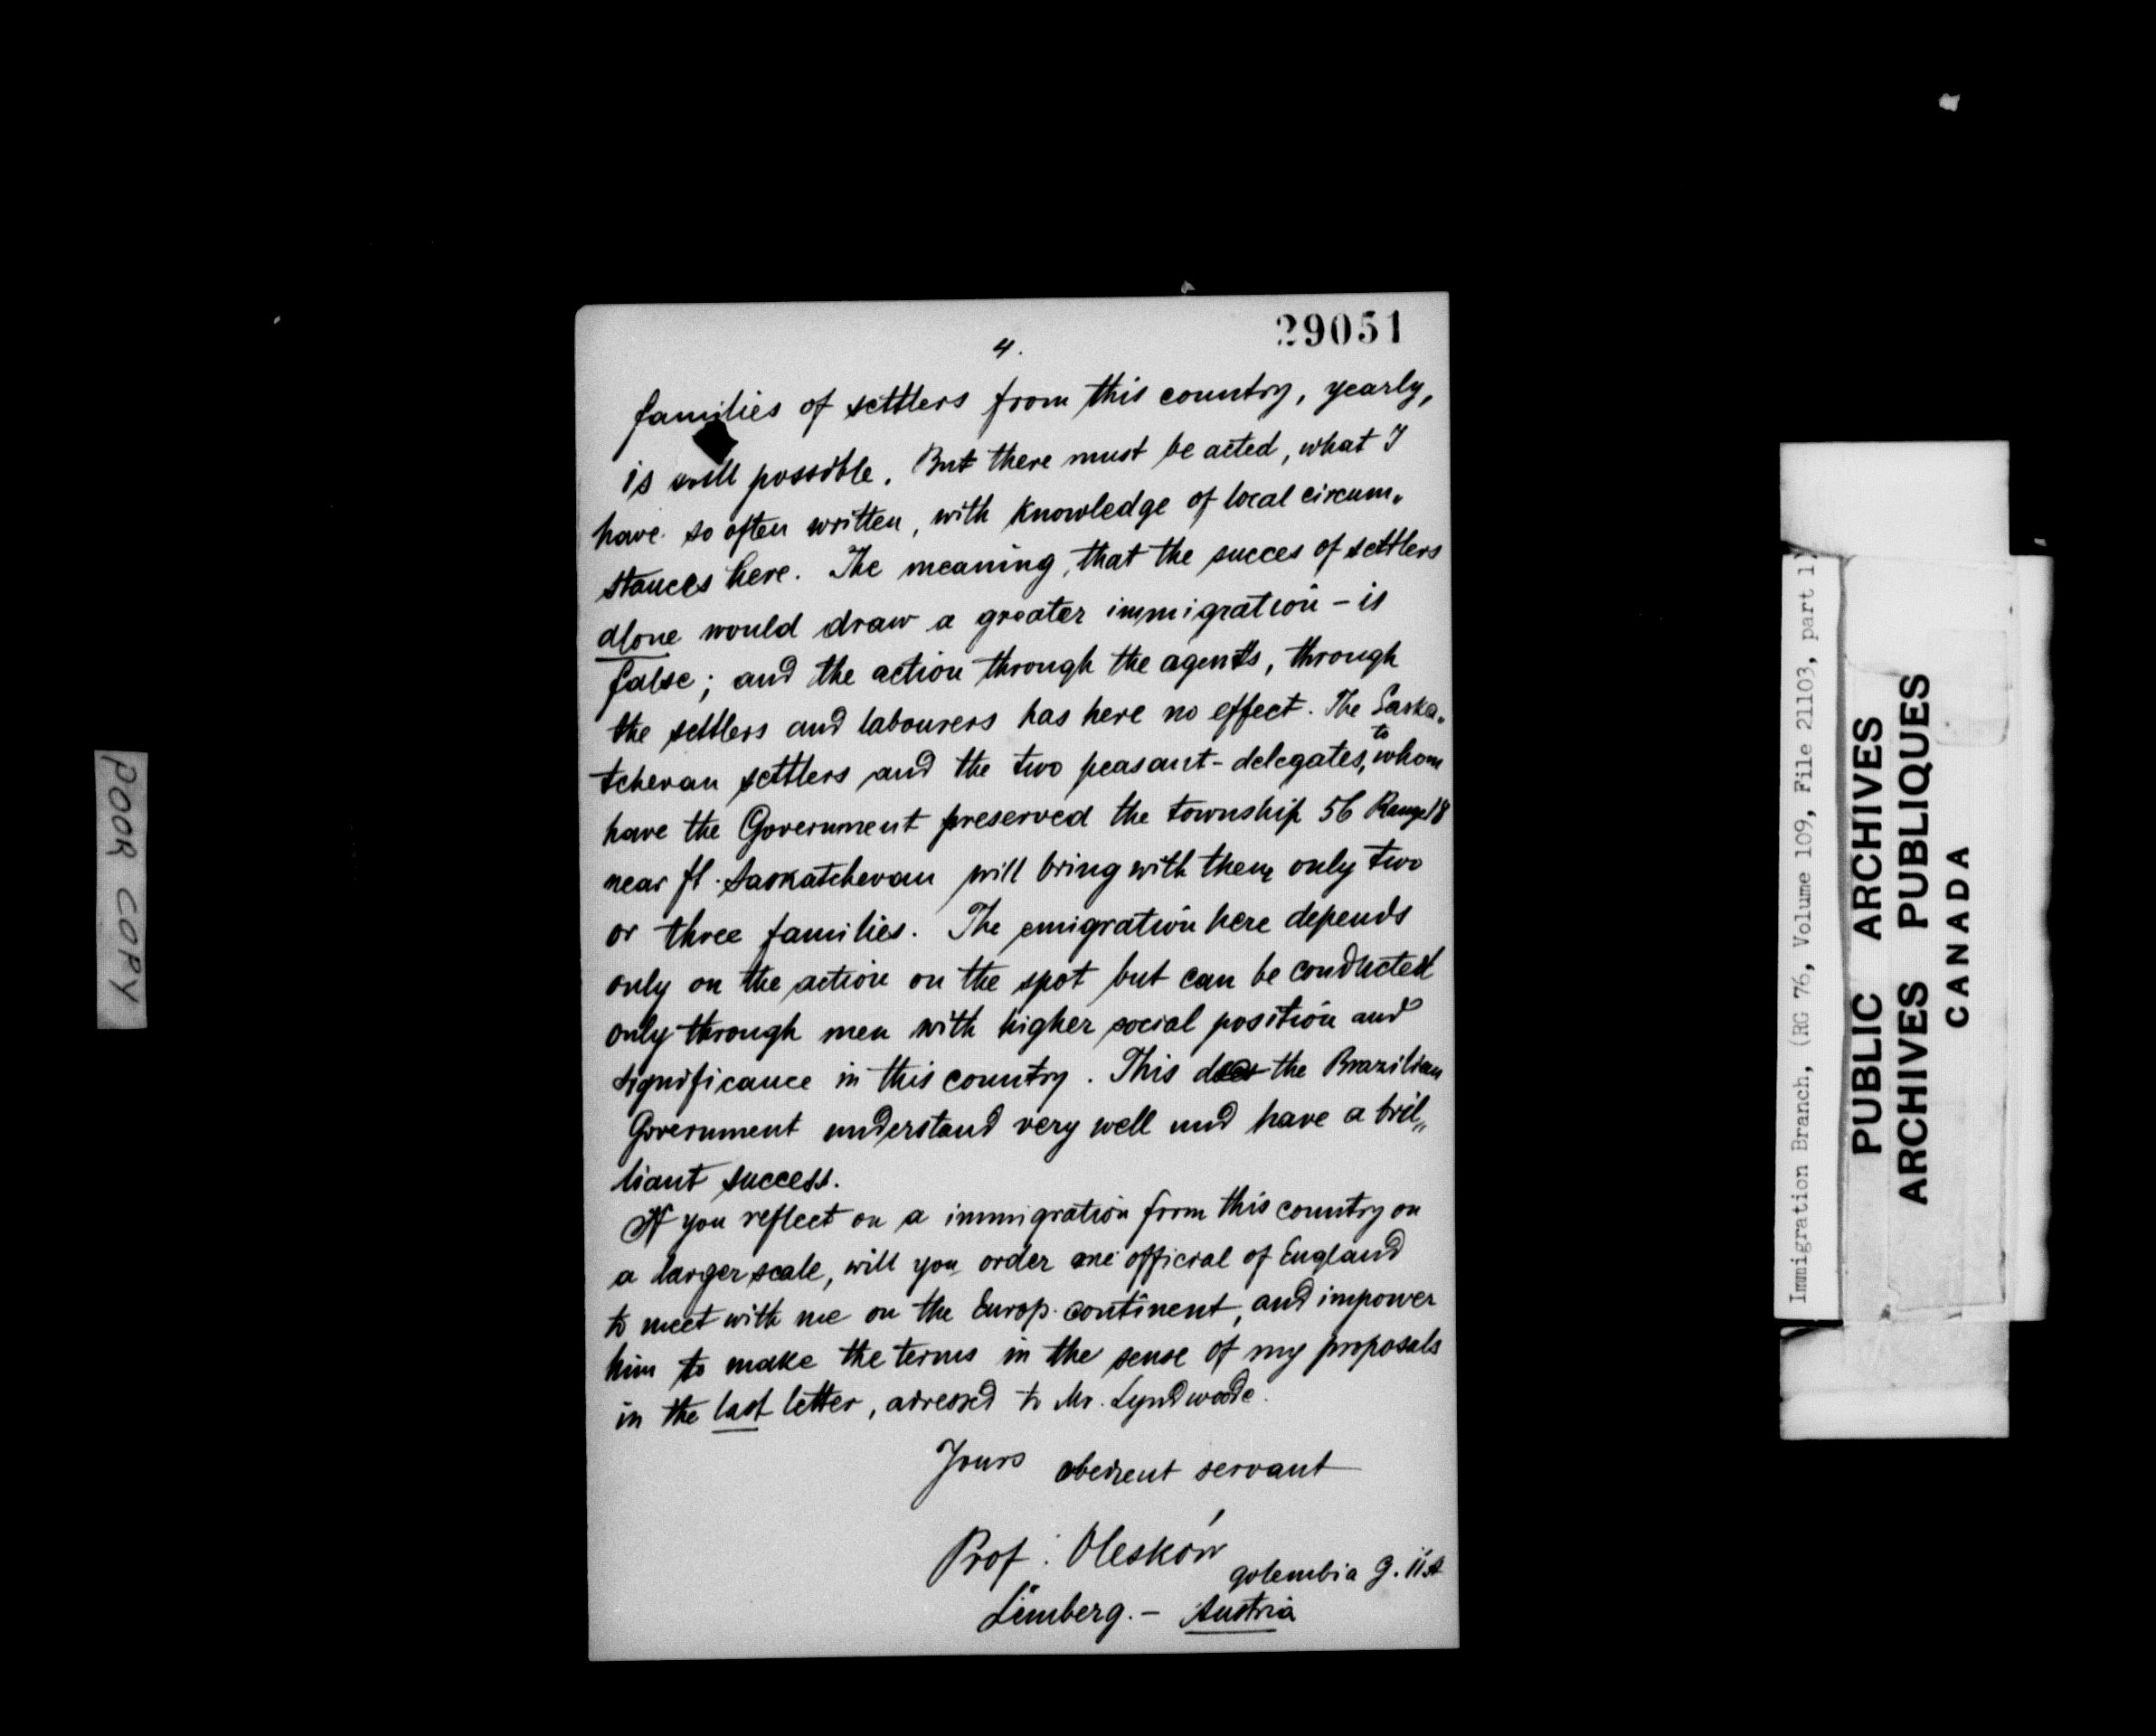 29051
4.
families of settlers from this country, yearly,
is well possible. But there must be acted, what I
have so often written, with knowledge of local circum„
stances here. The meaning, that the succes of settlers
alone would draw a greater immigration – is
false; and the action through the agents, through
the settlers and labourers has here no effect. The Saska„
tchevan settlers and the two peasant-delegates, to whom
have the Government preserved the township 56 Range 18
near ft. Saskatchevan will bring with them only two
or three families. The emigration here depends
only on the action on the spot but can be conducted
only through men with higher social position and
significance in this country. This does the Brazilian
Government understand very well und have a bril„
liant success.
If you reflect on a immigration from this country on
a larger scale, will you order one official of England
to meet with me on the Europ. continent, and impower
him to make the terms in the sense of my proposals
in the last letter, adressed to Mr. Lyndwoode.
Yours obedient servant
Prof. Olesków
golembia 9. II st
Lemberg. – Austria
POOR COPY
Immigration Branch, (RG 76, Volume 109, File 21103, part 1)
PUBLIC ARCHIVES
ARCHIVES PUBLIQUES
CANADA